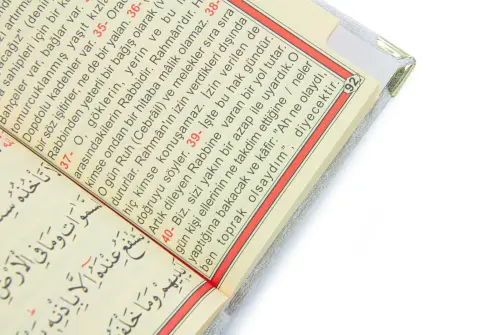 sahipleri için bir
Bahçeler var, bağlar var.
tomurcuklanmış yaşıt
Dopdolu kadehler var. 35-
bir söz işitirler, ne de bir yalan. 36-
Rabbinden yeten bir bağış olarak
37- O, göklerin, yerin ve bu
arasındakilerin Rabbidir. Rahmân'dır.
kimse ondan bir hitâba mâlik olamaz. 38-
O gün Ruh (Cebrâîl) ve melekler sıra sıra
dururlar. Rahmân'ın izin verdikleri dışında
hiç kimse konuşamaz. İzin verilen de
doğruyu söyler. 39- İşte bu hak gündür.
Artık dileyen Rabbine varan bir yol tutar.
40- Biz, sizi yakın bir azap ile uyardık. O
gün kişi ellerinin ne takdim ettiğine / neler
yaptığına bakacak ve kâfir: "Ah ne olaydı,
ben toprak olsaydım", diyecektir.
92
تَأْخُذُهُ
وَمَا فِي الْأَرْضِ
يَشْفَعُ عِنْدَهُ إِلَّا بِإِذْنِهِ
وَمَا